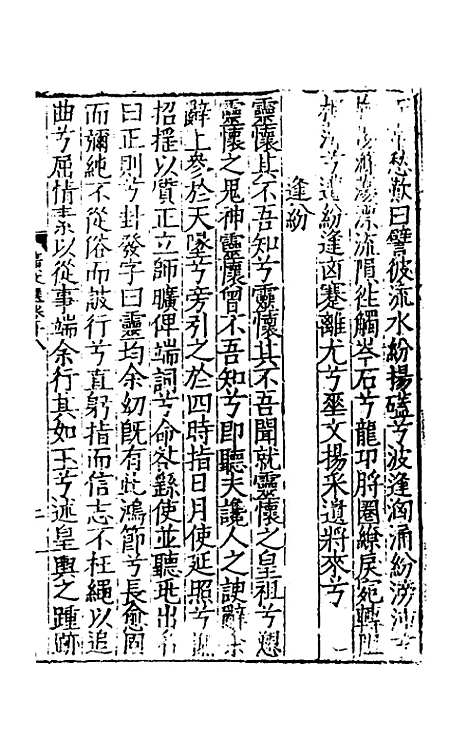 愁歎曰譬彼流水紛揚磕兮波逢洶涌紛滂沛兮
流隕往觸岑石兮龍卭脟圈繚戾宛轉阻
相薄兮遭紛逢凶蹇離尤兮垂文揚采遺將來兮
逢紛
靈懷其不吾知兮靈懷其不吾聞就靈懷之皇祖兮愬
靈懷之鬼神靈懷曾不吾知兮即聽夫讒人之諛辭余
辭上參於天墬兮旁引之於四時指日月使延照兮撫
招搖以質正立師曠俾端詞兮命咎繇使並聽兆出名
曰正則兮卦發字曰靈均余幼既有此鴻節兮長愈固
而彌純不從俗而詖行兮直躬指而信志不枉繩以追
曲兮屈情素以從事端余行其如玉兮述皇輿之踵跡